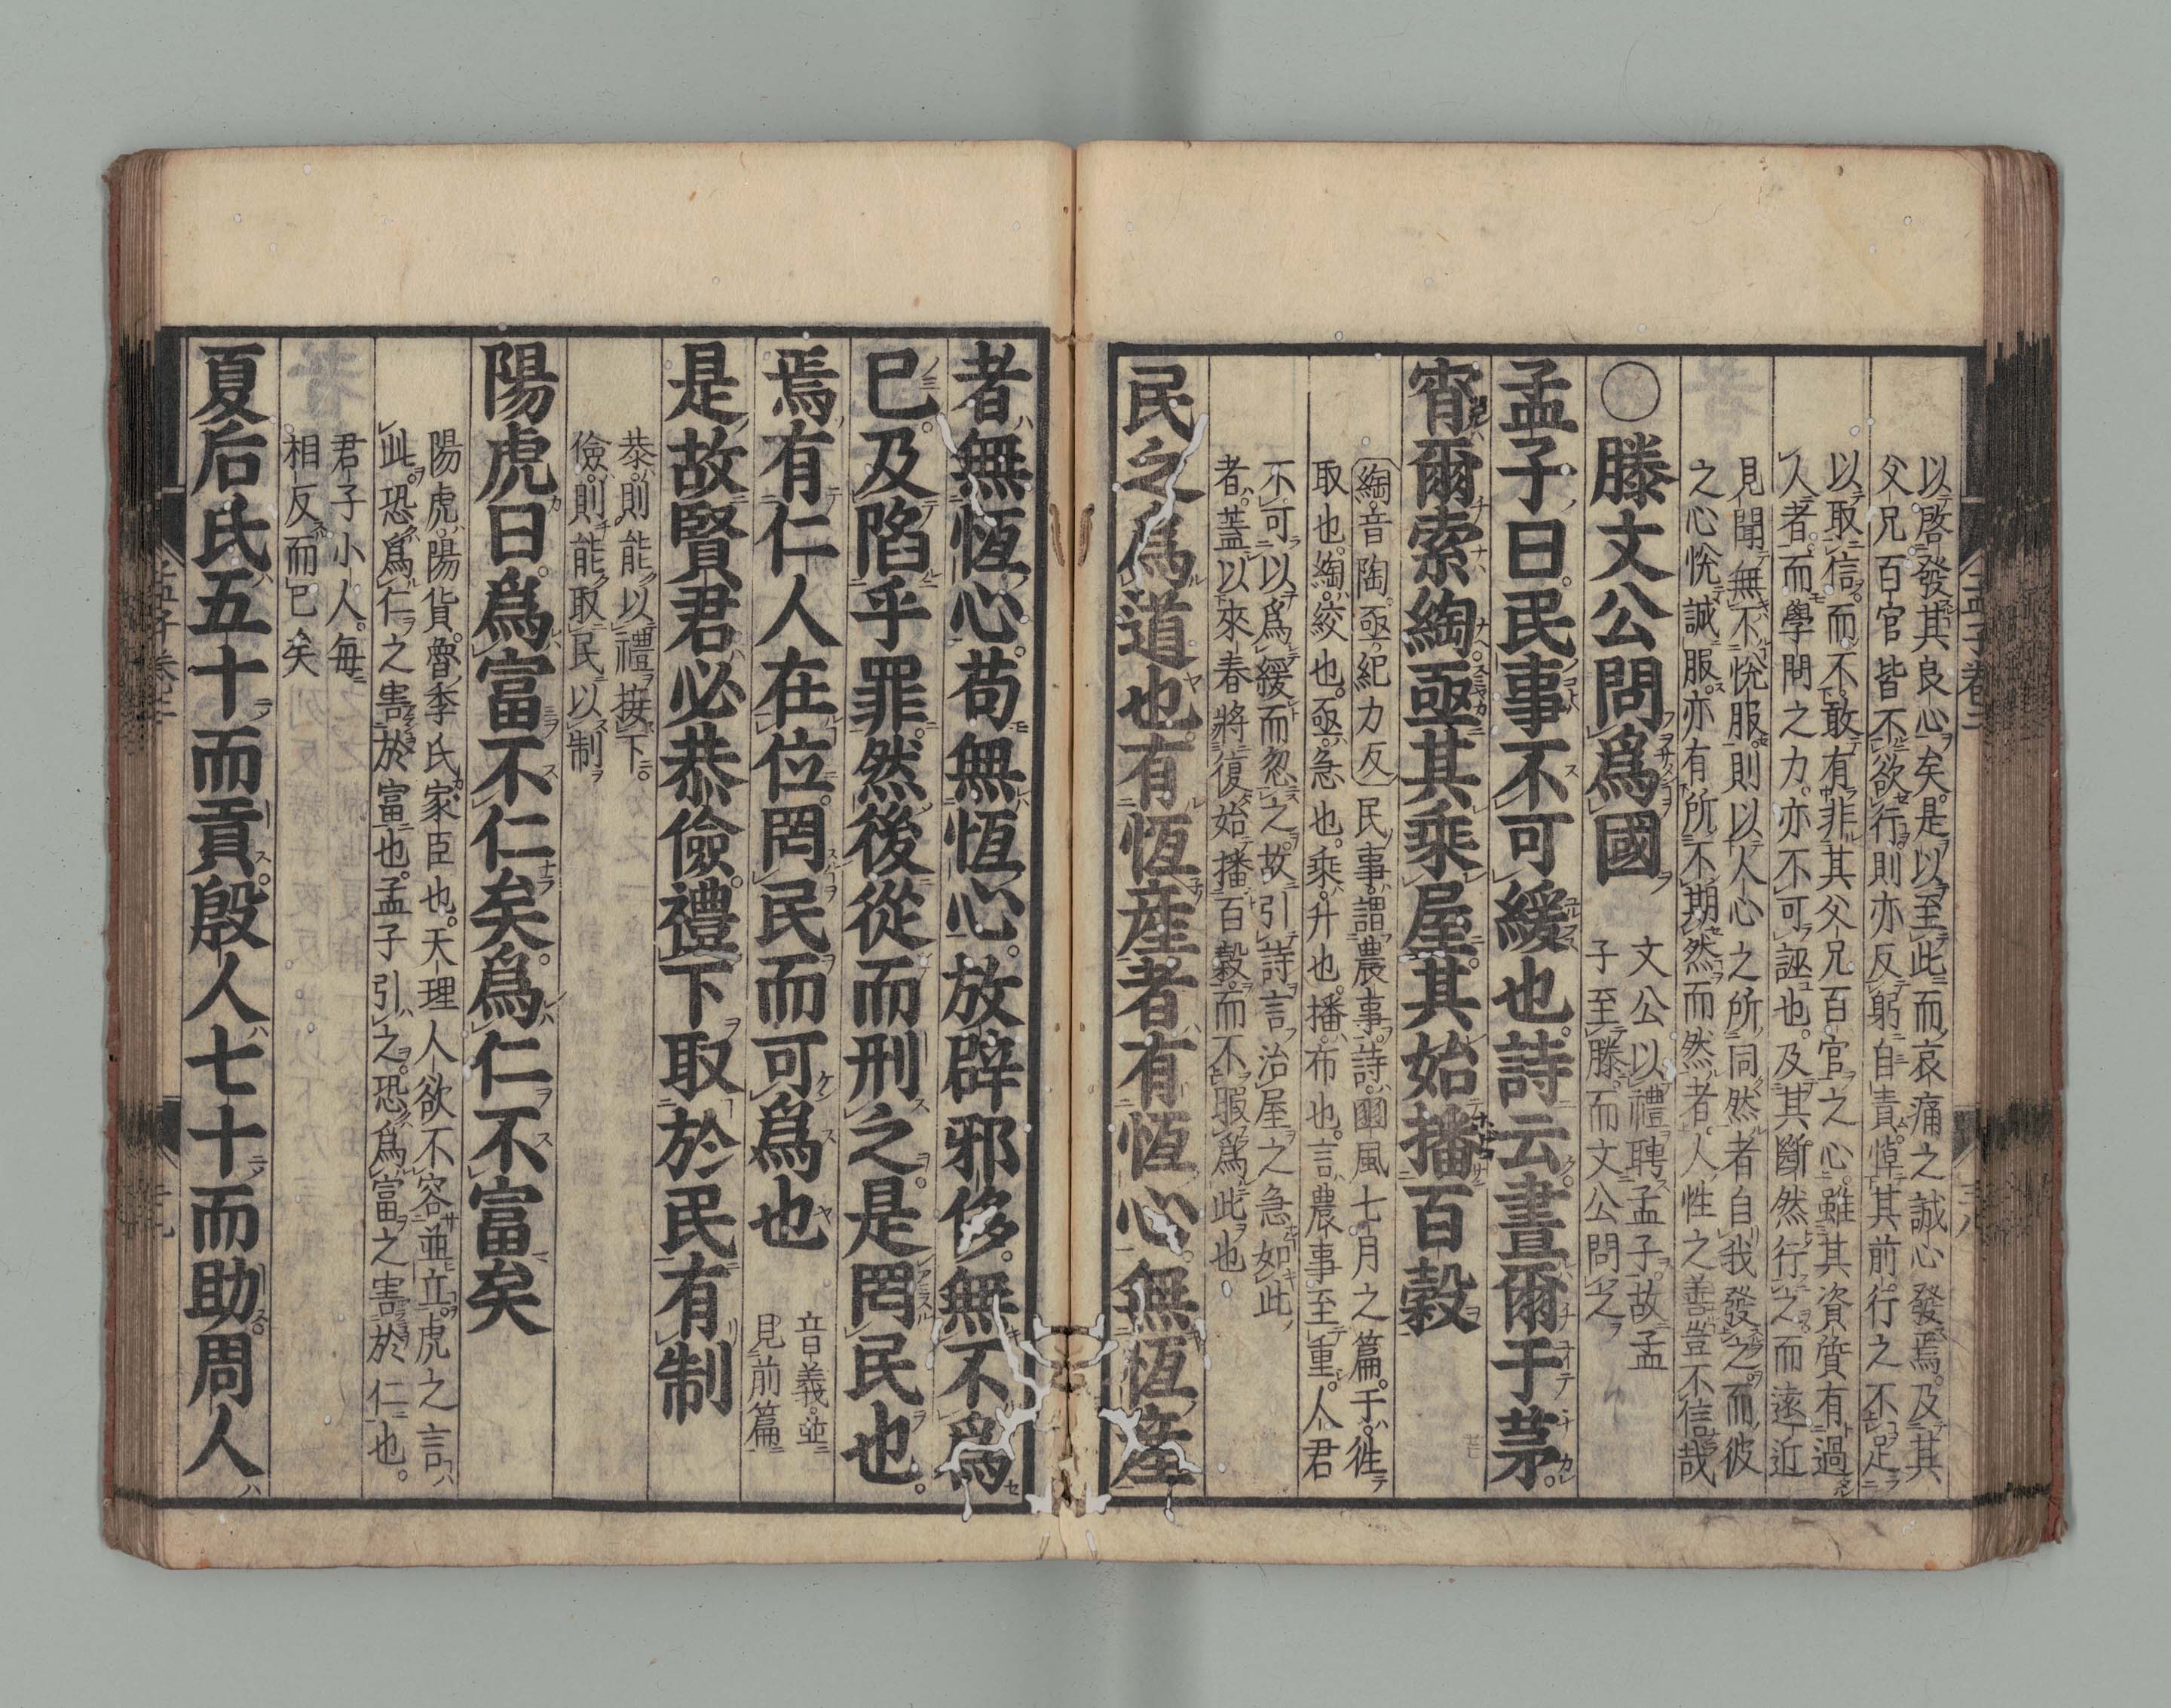 以啓發其良心矣。是以至此而哀痛之誠心發焉。及其
父兄百官皆不欲行。則亦反躬自責。悼其前行之不足
以取信。而不敢有非其父兄百官之心。雖其資質有過
人者。而學問之力。亦不可誣也。及其斷然行之。而遠近
見聞無不悅服。則以人心之所同然者。自我發之。而彼
之心悅誠服。亦有所不期然而然者。人性之善。豈不信哉
○滕文公問爲國
文公以禮聘孟子。故孟
子至滕。而文公問之
孟子曰。民事不可緩也。詩云。晝爾于茅。
宵爾索綯。亟其乘屋。其始播百穀
綯。音陶。亟。紀力反 民事。謂農事。詩。豳風七月之篇。于。徃
取也。綯。絞也。亟。急也。乘。升也。播。布也。言農事至重。人君
不可以爲緩而忽之。故引詩言治屋之急如此
者。葢以來春將復始播百穀。而不暇爲此也。
民之爲道也。有恆產者有恆心。無恆產
者無恆心。苟無恆心。放辟邪侈。無不爲
已。及陷乎罪。然後從而刑之。是罔民也。
焉有仁人在位。罔民而可爲也
音義。並
見前篇
是故賢君必恭儉。禮下取於民有制
恭。則能以禮接下。
儉。則能取民以制
陽虎曰。爲富不仁矣。爲仁不富矣
陽虎。陽貨。魯季氏家臣也。天理人欲不容並立。虎之言
此。恐爲仁之害於富也。孟子引之。恐爲富之害於仁也。
君子小人。每
相反而已矣
夏后氏五十而貢。殷人七十而助。周人